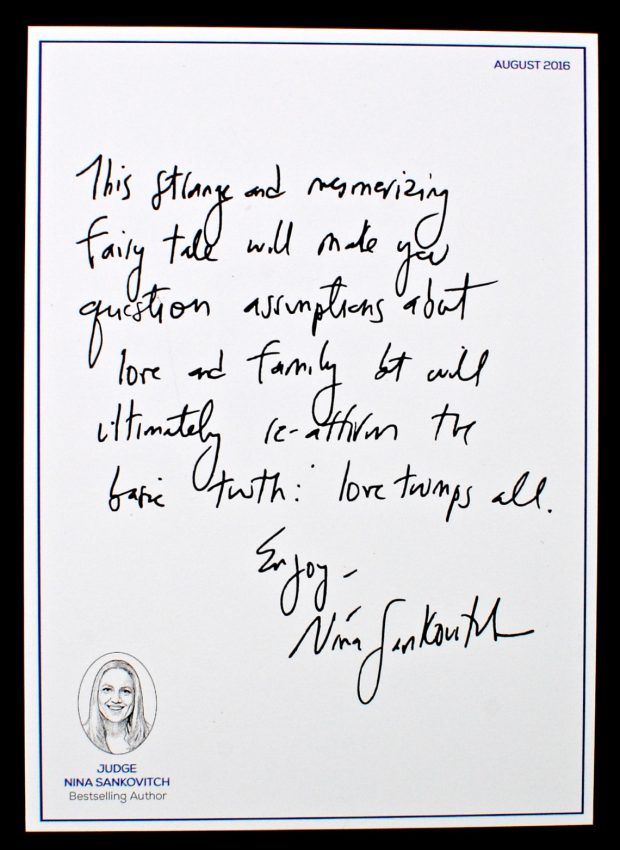 AUGUST 2016
This strange and mesmerizing
fairy tale will make you
question assumptions about
love and family but will
ultimately re-affirm the
basic truth: love trumps all.
Enjoy –
Nina Sankovitch
JUDGE
NINA SANKOVITCH
Bestselling Author